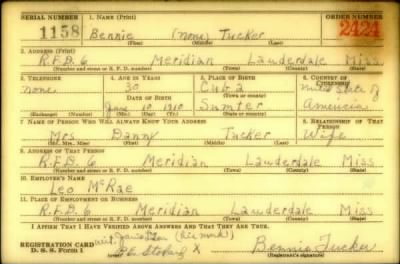 SERIAL NUMBER 1. NAME (Print) ORDER NUMBER
1158 Bennie (None) Tucker 2424
(First) (Middle) (Last)
2. ADDRESS (Print)
R.F.D. 6 Meridian Lauderdale Miss.
(Number and street or R. F. D. number) (Town) (County) (State)
3. TELEPHONE 4. AGE IN YEARS 5. PLACE OF BIRTH 6. COUNTRY OF CITIZENSHIP
none 30 Cuba
DATE OF BIRTH (Town or county)
June 10 1910 Sumter America
(Exchange) (Number) (Mo.) (Day) (Yr.) (State or country)
7. NAME OF PERSON WHO WILL ALWAYS KNOW YOUR ADDRESS 8. RELATIONSHIP OF THAT PERSON
Mrs Danny Tucker Wife
(Mr., Mrs., Miss) (First) (Middle) (Last)
9. ADDRESS OF THAT PERSON
R.F.D. 6 Meridian Lauderdale Miss
(Number and street or R. F. D. number) (Town) (County) (State)
10. EMPLOYER'S NAME
Leo McRae
11. PLACE OF EMPLOYMENT OR BUSINESS
R.F.D. 6 Meridian Lauderdale Miss
(Number and street or R. F. D. number) (Town) (County) (State)
I AFFIRM THAT I HAVE VERIFIED ABOVE ANSWERS AND THAT THEY ARE TRUE.
REGISTRATION CARD (his mark)
D. S. S. Form 1 X Bennie Tucker
(Registrant's signature)